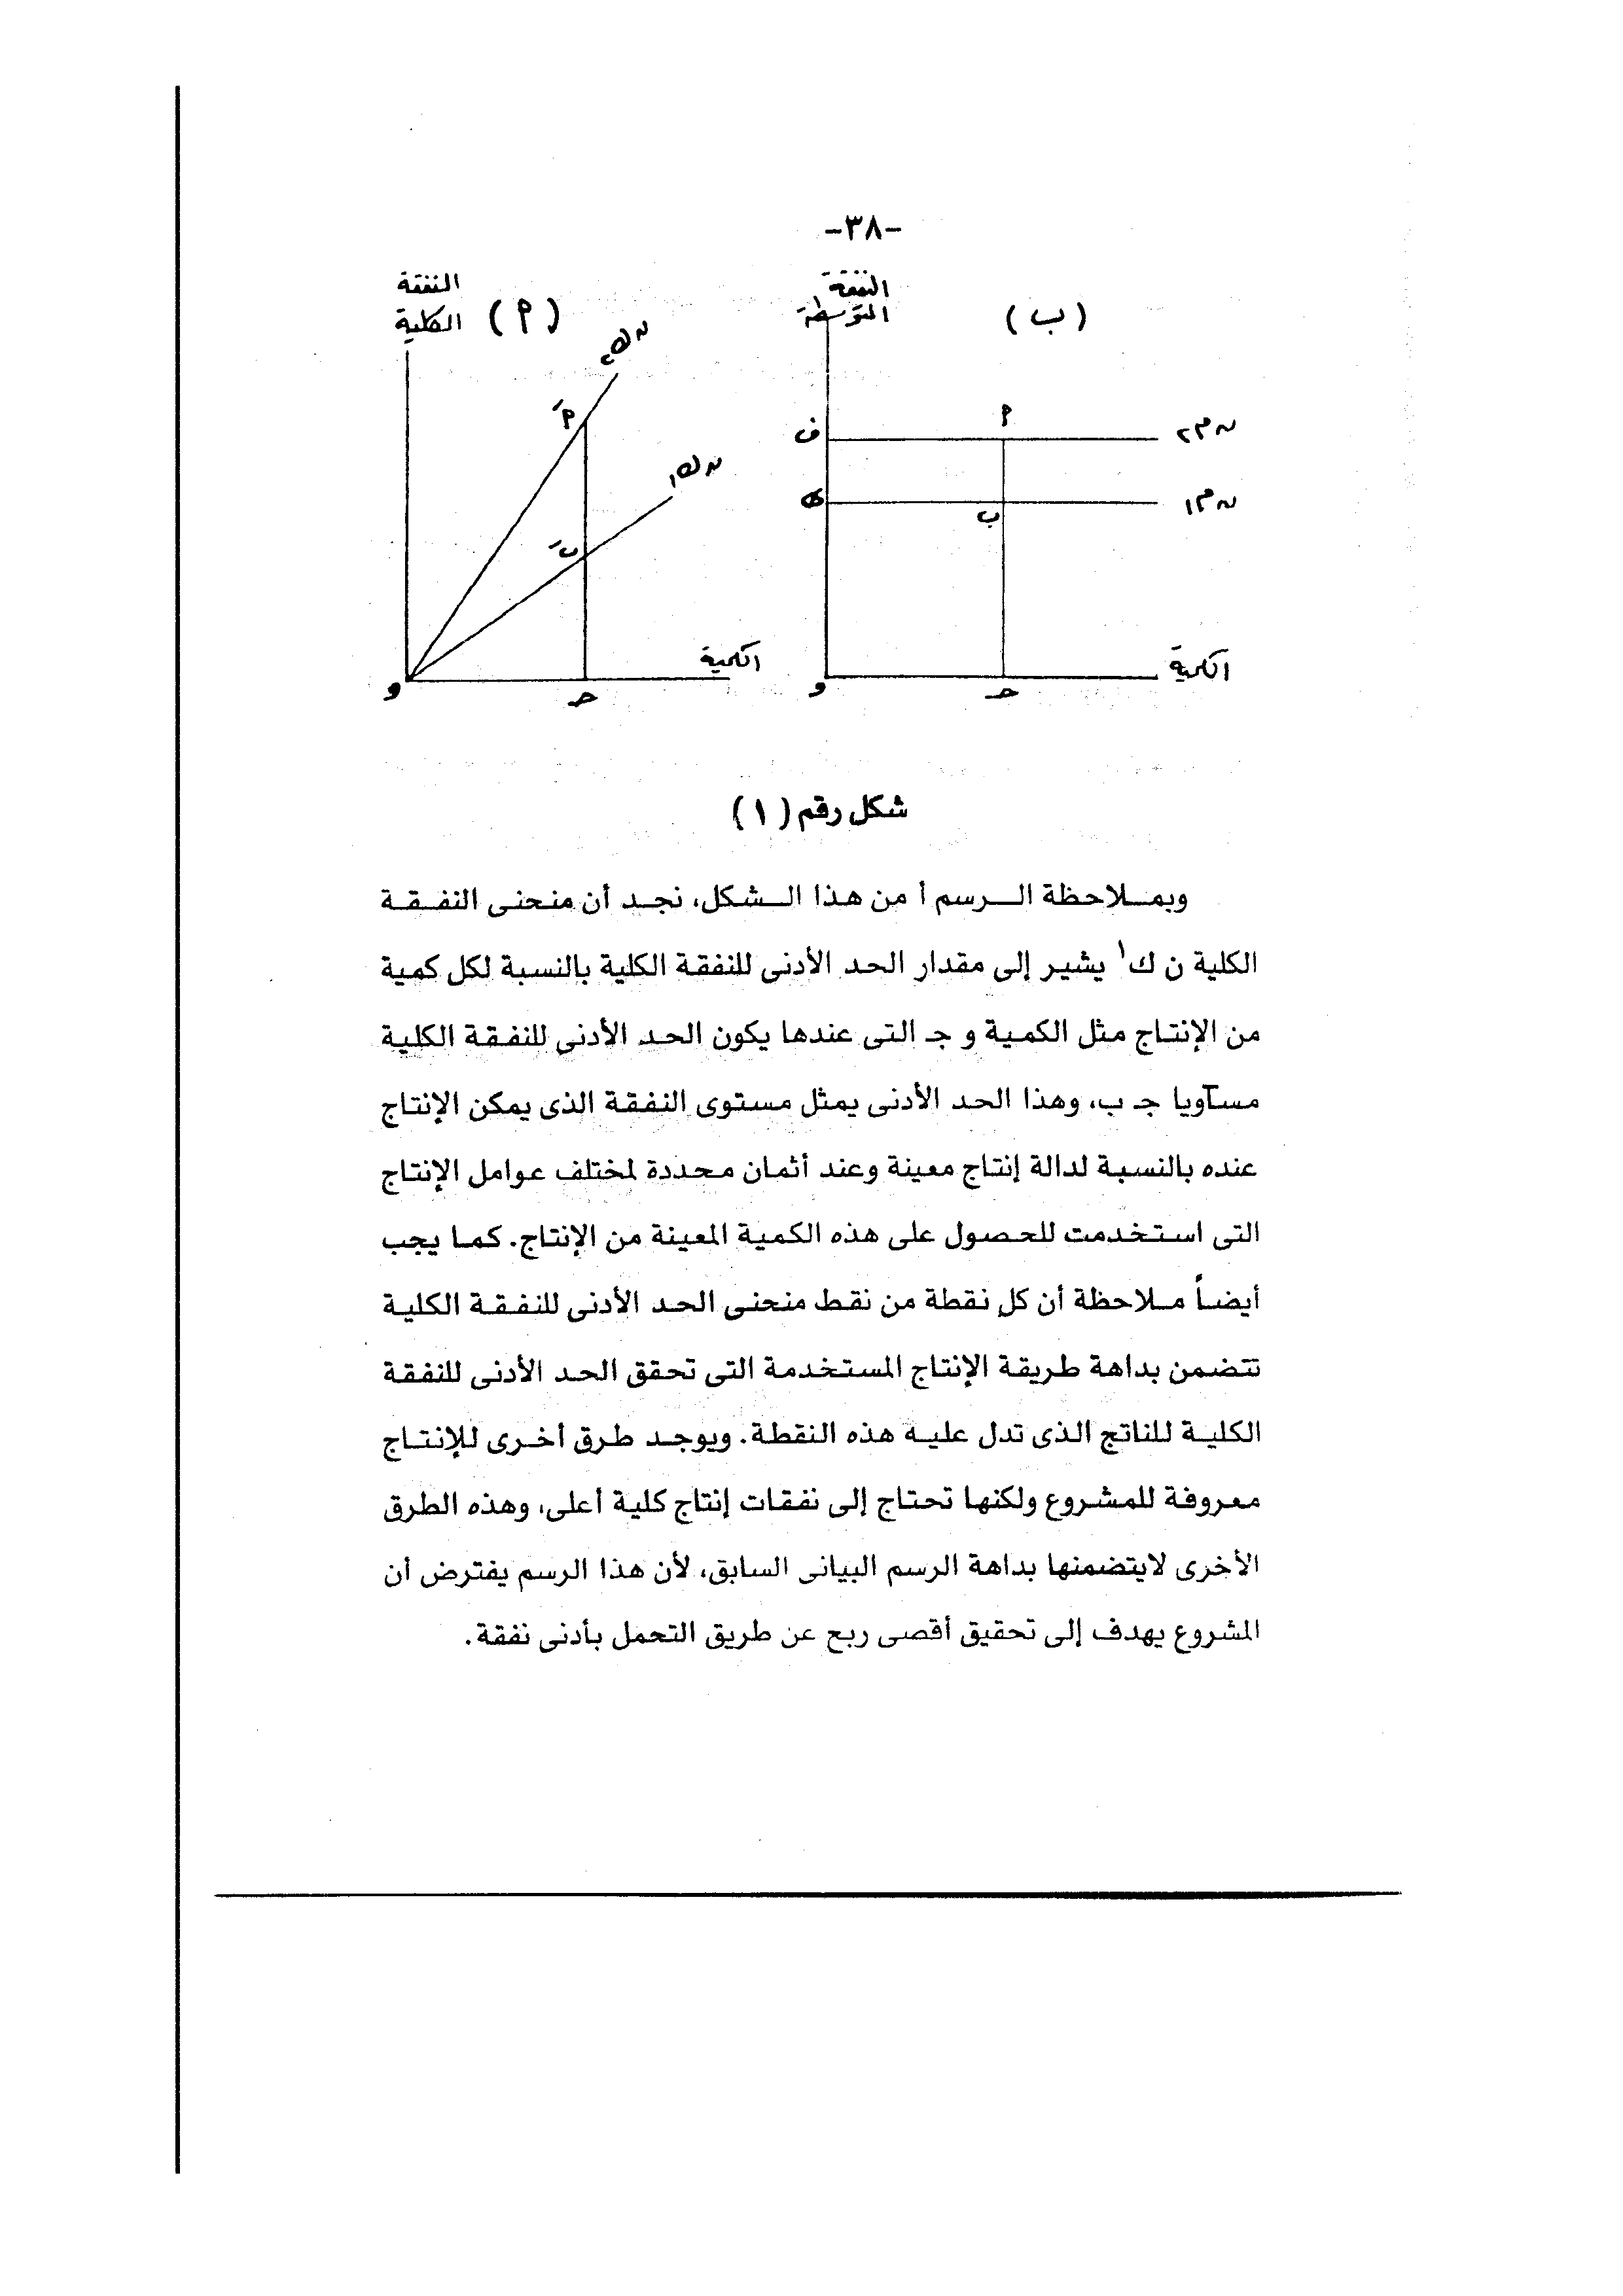 -٣٨-
النفقة
الكلية
(أ)
ن ك٢
أَ
ن ك١
بَ
الكمية
و
جـ
النفقة
المتوسطة
(ب)
ف
أ
ن م٢
ب
ن م١
الكمية
و
جـ
شكل رقم (١)
وبمـلاحظة الـرسم أ من هذا الـشكل، نجـد أن منحنى النفـقـة
الكلية ن ك١ يشير إلى مقدار الحد الأدنى للنفقة الكلية بالنسبة لكل كمية
من الإنتاج مثل الكمية و جـ التى عندها يكون الحد الأدنى للنفقة الكلية
مساويا جـ ب، وهذا الحد الأدنى يمثل مستوى النفقة الذى يمكن الإنتاج
عنده بالنسبة لدالة إنتاج معينة وعند أثمان محددة لمختلف عوامل الإنتاج
التى استخدمت للحصول على هذه الكمية المعينة من الإنتاج. كما يجب
أيضاً ملاحظة أن كل نقطة من نقط منحنى الحد الأدنى للنفقة الكلية
تتضمن بداهة طريقة الإنتاج المستخدمة التى تحقق الحد الأدنى للنفقة
الكلية للناتج الذى تدل عليه هذه النقطة. ويوجد طرق أخرى للإنتاج
معروفة للمشروع ولكنها تحتاج إلى نفقات إنتاج كلية أعلى، وهذه الطرق
الأخرى لايتضمنها بداهة الرسم البيانى السابق، لأن هذا الرسم يفترض أن
المشروع يهدف إلى تحقيق أقصى ربح عن طريق التحمل بأدنى نفقة.